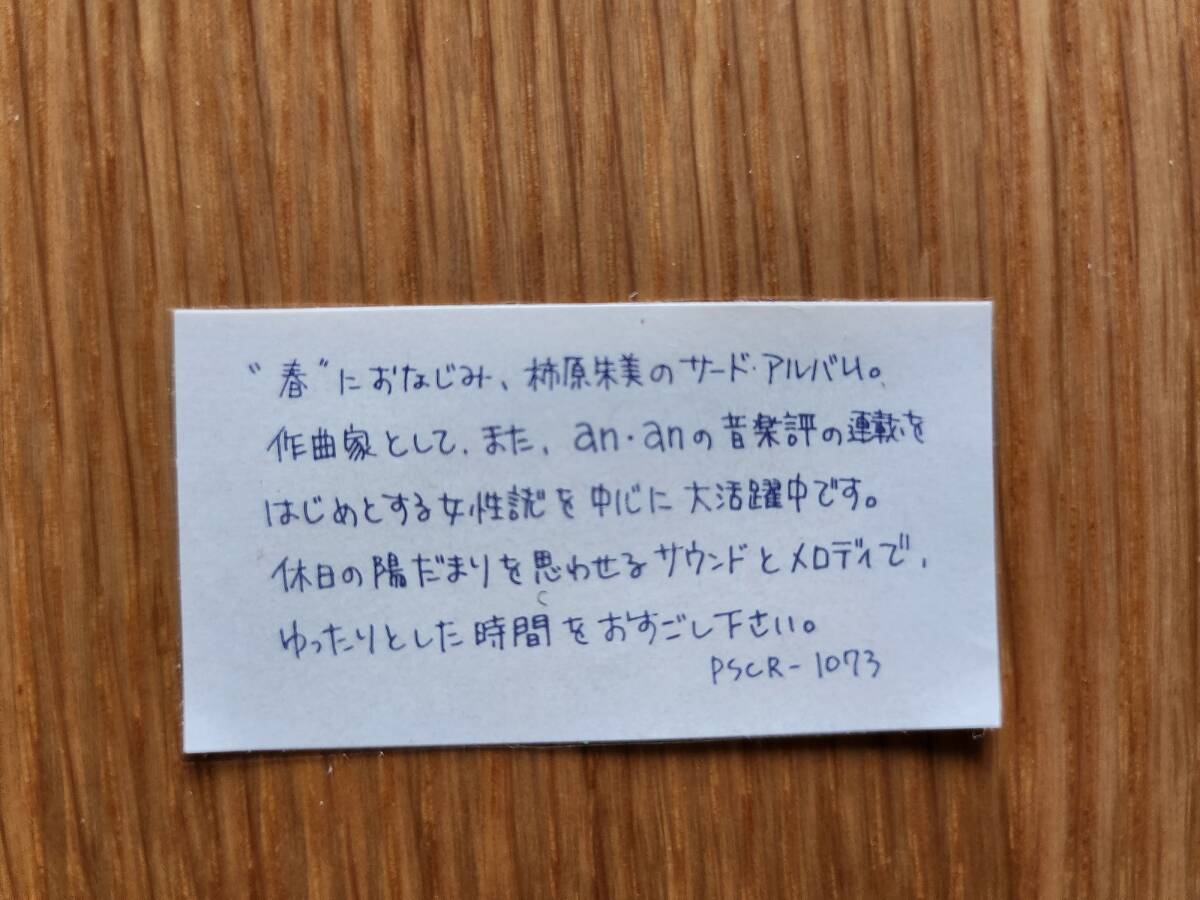 "春"におなじみ、柿原朱美のサード・アルバム。
作曲家として、また、an・anの音楽評の連載を
はじめとする女性誌を中心に大活躍中です。
休日の陽だまりを思わせるサウンドとメロディで、
ゆったりとした時間をおすごし下さい。
PSCR-1073